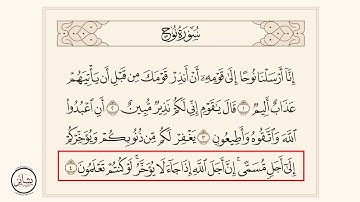 سُورَةُ نُوحٍ
إِنَّآ أَرْسَلْنَا نُوحًا إِلَىٰ قَوْمِهِۦٓ أَنْ أَنذِرْ قَوْمَكَ مِن قَبْلِ أَن يَأْتِيَهُمْ
عَذَابٌ أَلِيمٌ ١ قَالَ يَٰقَوْمِ إِنِّي لَكُمْ نَذِيرٌ مُّبِينٌ ٢ أَنِ ٱعْبُدُوا۟
ٱللَّهَ وَٱتَّقُوهُ وَأَطِيعُونِ ٣ يَغْفِرْ لَكُم مِّن ذُنُوبِكُمْ وَيُؤَخِّرْكُمْ
إِلَىٰٓ أَجَلٍ مُّسَمًّى ۚ إِنَّ أَجَلَ ٱللَّهِ إِذَا جَآءَ لَا يُؤَخَّرُ ۖ لَوْ كُنتُمْ تَعْلَمُونَ ٤